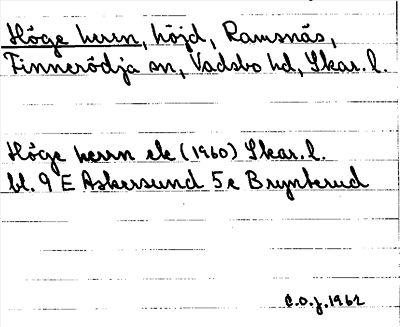 Höge hurn, höjd, Ramsnäs,
Finnerödja sn, Vadsbo hd, Skar. l.
Höge herrn ek (1960) Skar. l.
bl. 9 E Askersund 5 e Brynterud
C.O.J. 1962